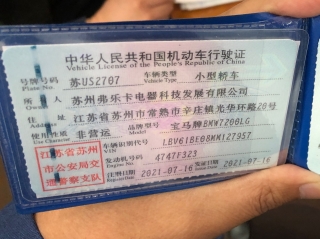 中华人民共和国机动车行驶证
Vehicle License of the People's Republic of China
号牌号码 苏US2707 车辆类型 小型轿车
Plate No. Vehicle Type
所有人 苏州弗乐卡电器科技发展有限公司
Owner
住址 江苏省苏州市常熟市辛庄镇光华环路20号
Address
使用性质 非营运 品牌型号 宝马牌BMW7200LG
Use Character Model
江苏省苏州市公安局交通警察支队
车辆识别代号
VIN
发动机号码 4747F323
Engine No.
注册日期 2021-07-16 发证日期 2021-07-16
Register Date Issue Date